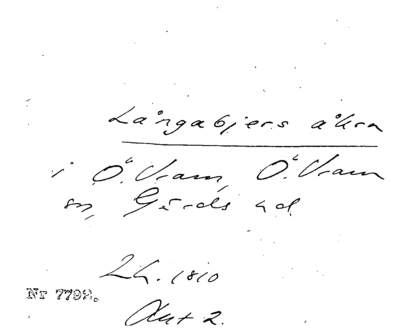 Långabjers åkra
i Ö. Vram, Ö. Vram
sn, Gärds hd.
2h. 1810
Nr 7798.
Akt 2.